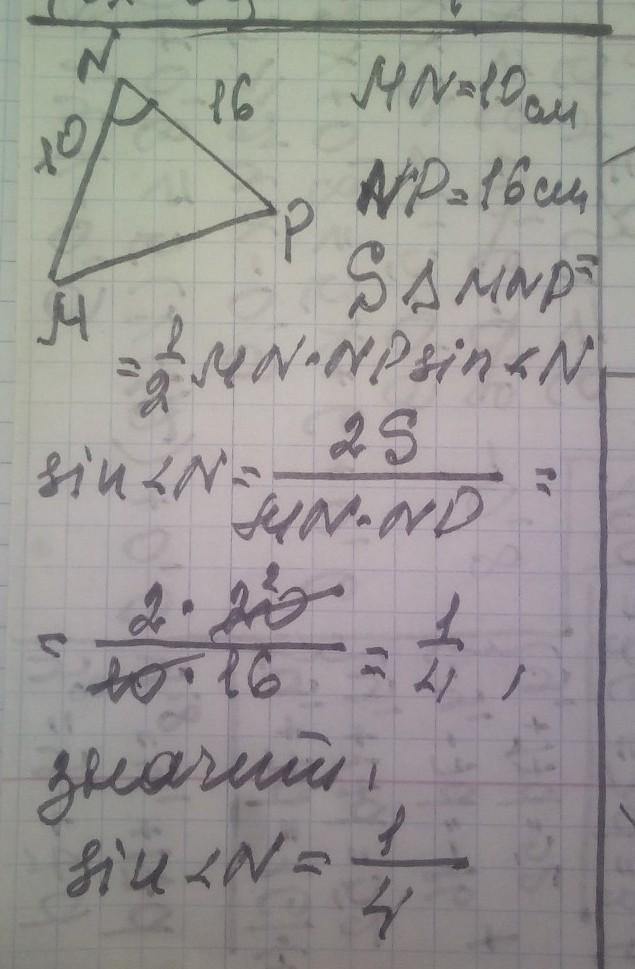 N
10
16
MN=10см
NP=16см
P
S Δ MNP=
M
= 1/2 MN·NP sin∠N
sin∠N = 2S / MN·NP =
= 2·20 2 / 10·16 = 1/4 ,
значит,
sin∠N = 1/4